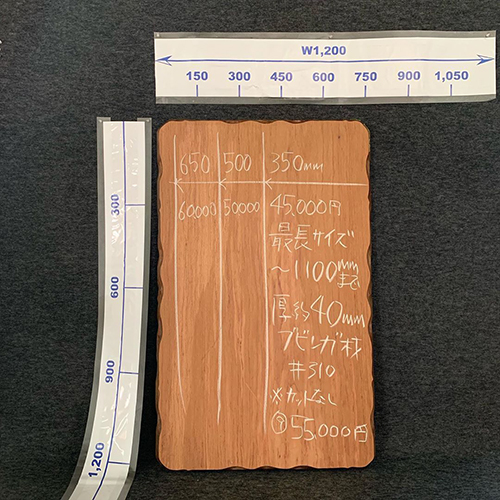 W1,200
150 300 450 600 750 900 1,050
300
600
900
1,200
650 500 350mm
60,000 50000 45,000円
最長サイズ
~1100mmまで
厚約40mm
ブビンガ材
#310
※カットなし
55,000円